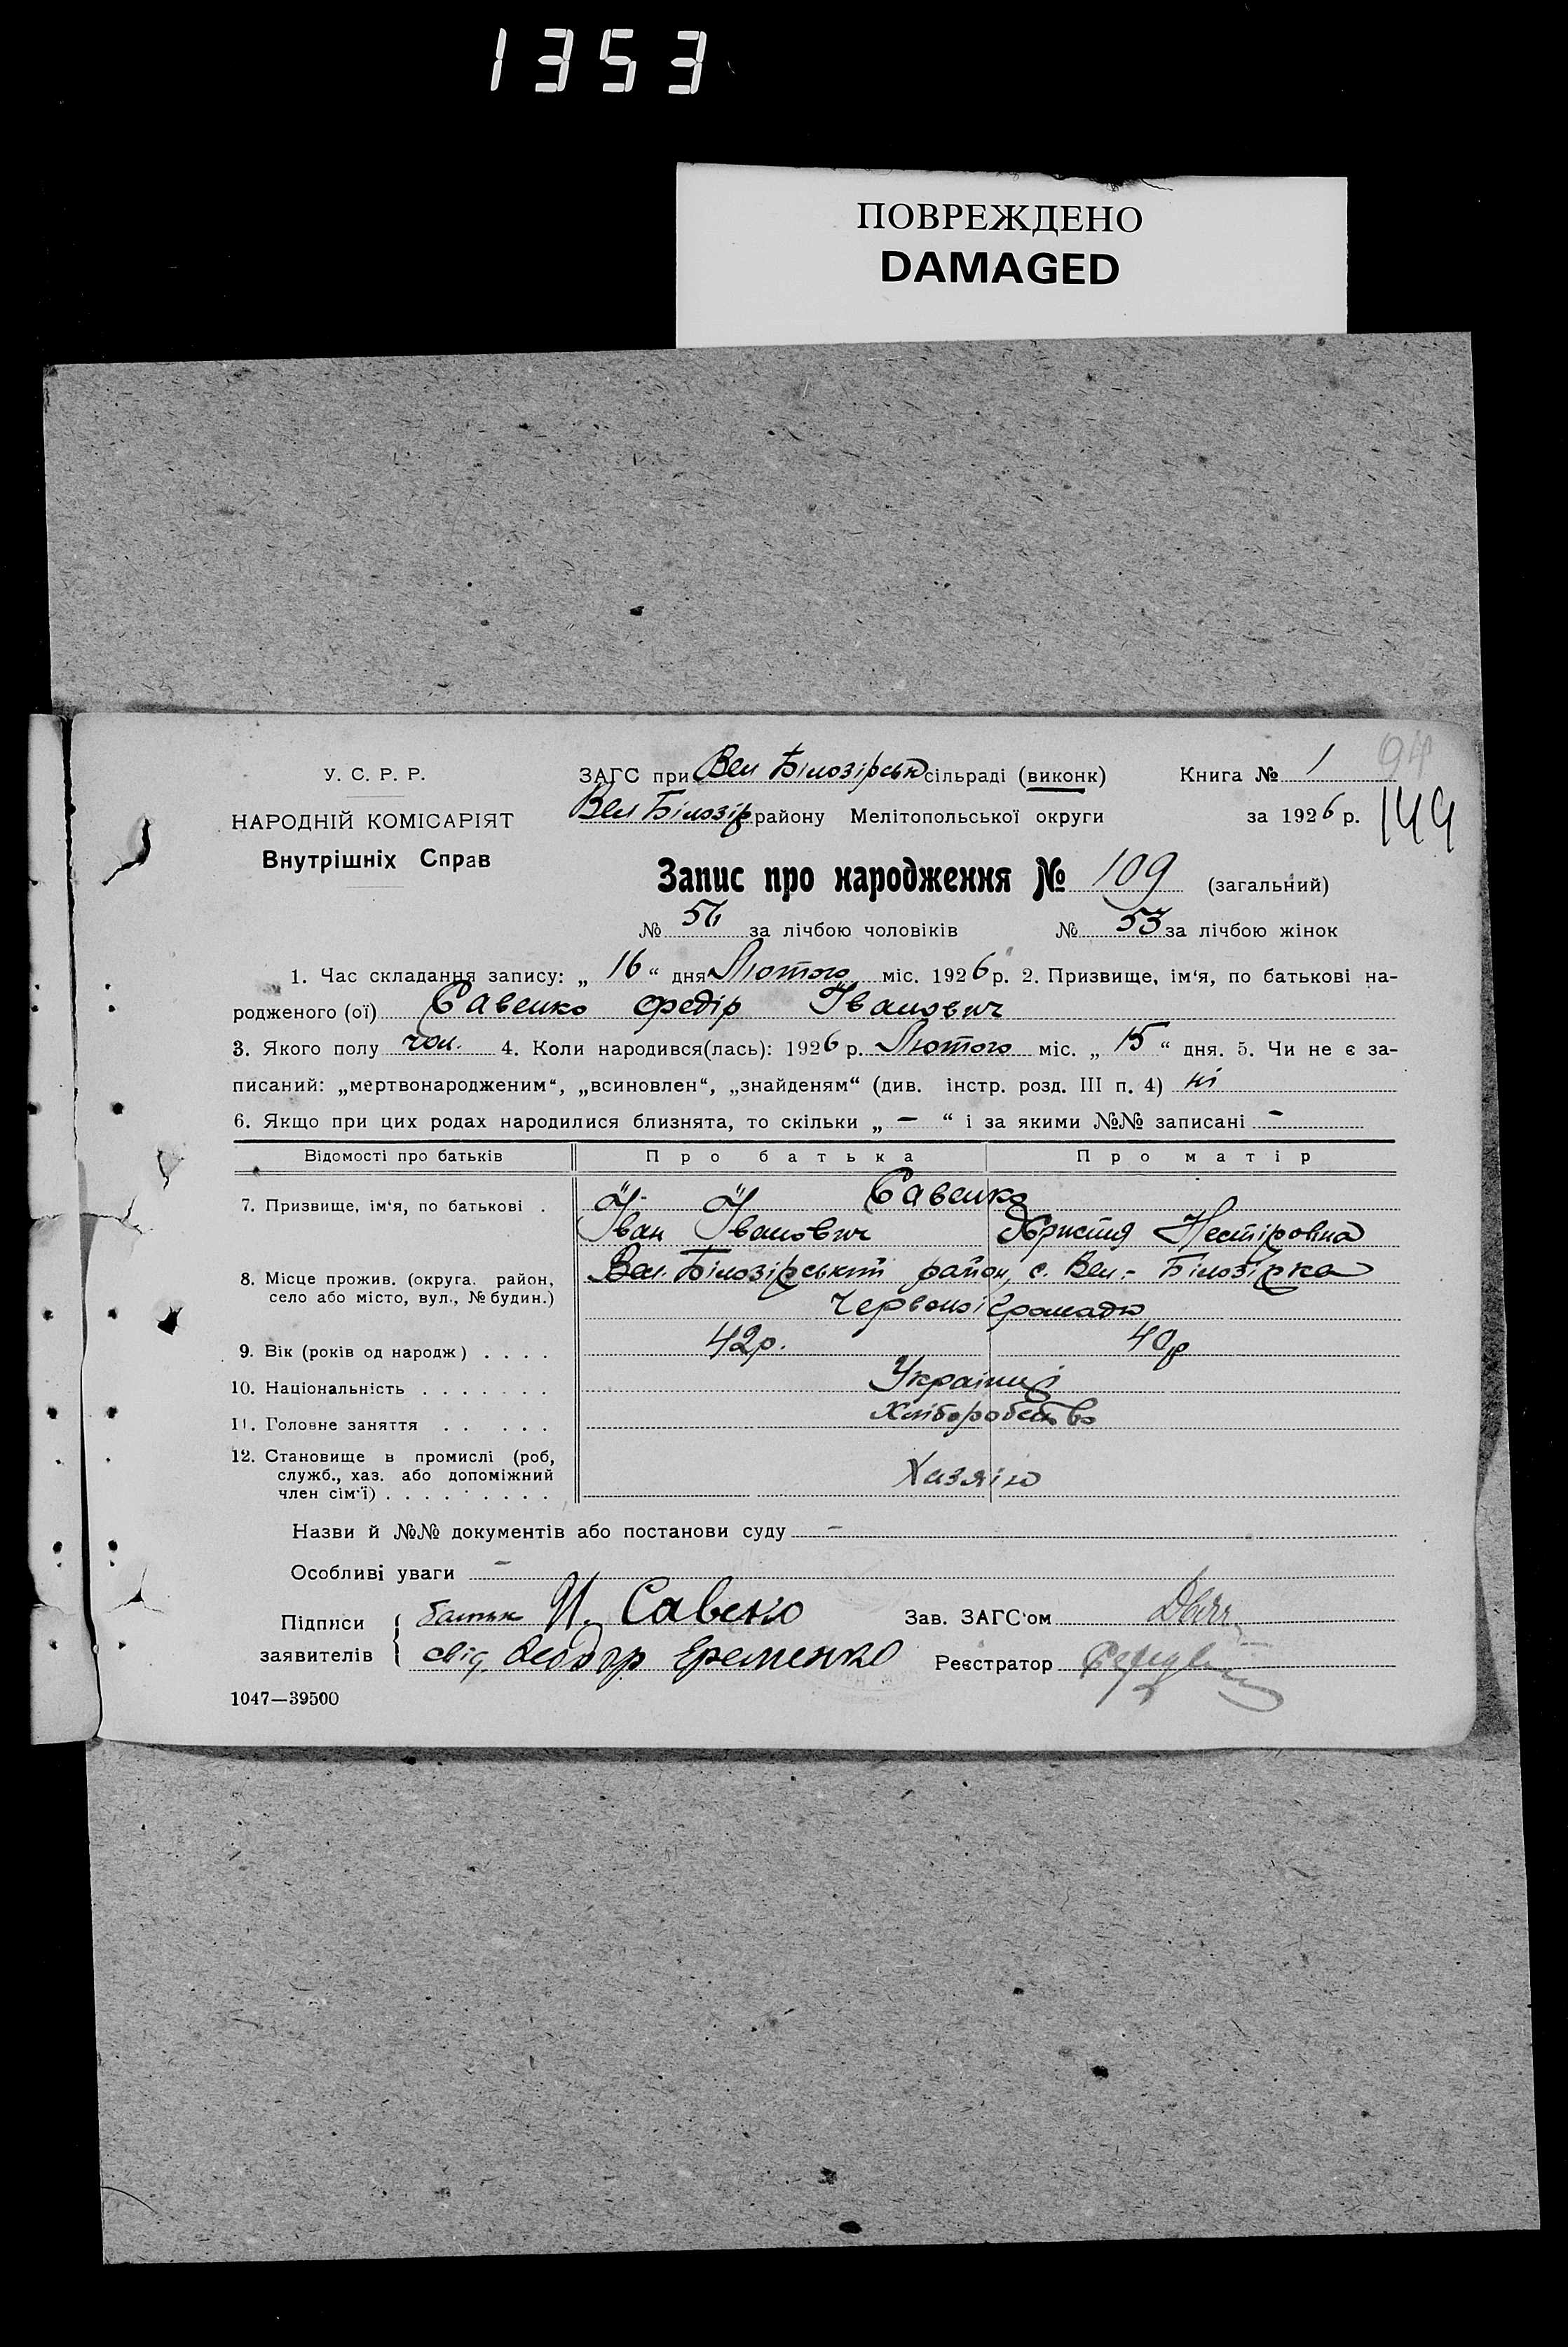 1353
ПОВРЕЖДЕНО
DAMAGED
94
У. С. Р. Р.
ЗАГС при Вел Білозірськ сільраді (виконк)
Книга № 1
НАРОДНІЙ КОМІСАРІЯТ
Вел Білозір району Мелітопольської округи
за 1926 р.
144
Внутрішніх Справ
Запис про народження № 109 (загальний)
№ 56 за лічбою чоловіків № 53 за лічбою жінок
1. Час складання запису: „ 16 “ дня Лютого міс. 1926 р. 2. Призвище, ім‘я, по батькові на-
родженого (ої) Савенко Федір Іванович
3. Якого полу чол. 4. Коли народився(лась): 1926 р. Лютого міс. „ 15 “ дня. 5. Чи не є за-
писаний: „мертвонародженим“, „всиновлен“, „знайденям“ (див. інстр. розд. III п. 4) ні
6. Якщо при цих родах народилися близнята, то скільки „ — “ і за якими №№ записані —
Відомості про батьків Про батька Про матір
7. Призвище, ім‘я, по батькові . Савенко
Іван Іванович Христя Нестіровна
8. Місце прожив. (округа. район, Вел. Білозірський район, с. Вел.- Білозірка
село або місто, вул., № будин.) Червоної Громади
9. Вік (років од народж) . . . . 42р. 40р
10. Національність . . . . . . . Українці
11. Головне заняття . . . . . Хліборобство
12. Становище в промислі (роб,
служб., хаз. або допоміжний Хазяїн
член сім‘ї) . . . . . . . . .
Назви й №№ документів або постанови суду —
Особливі уваги —
Підписи батьк И. Савенко Зав. ЗАГС‘ом
заявителів свід. Еременко Реєстратор
1047—39500